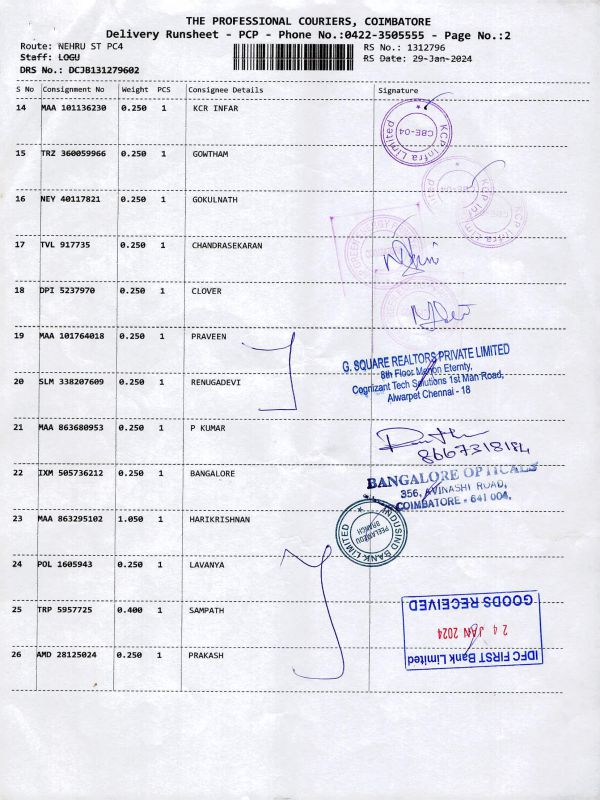 THE PROFESSIONAL COURIERS, COIMBATORE
Delivery Runsheet - PCP - Phone No.:0422-3505555 - Page No.:2
Route: NEHRU ST PC4 RS No.: 1312796
Staff: LOGU RS Date: 29-Jan-2024
DRS No.: DCJB131279602
S No Consignment No Weight PCS Consignee Details Signature
14 MAA 101136230 0.250 1 KCR INFAR
KCP Infra Limited
CBE-04
15 TRZ 360059966 0.250 1 GOWTHAM
16 NEY 40117821 0.250 1 GOKULNATH
17 TVL 917735 0.250 1 CHANDRASEKARAN
18 DPI 5237970 0.250 1 CLOVER
19 MAA 101764018 0.250 1 PRAVEEN
G. SQUARE REALTORS PRIVATE LIMITED
8th Floor Menon Eternty,
Cognizant Tech Solutions 1st Man Road,
Alwarpet Chennai - 18
20 SLM 338207609 0.250 1 RENUGADEVI
21 MAA 863680953 0.250 1 P KUMAR
8667318184
22 IXM 505736212 0.250 1 BANGALORE
BANGALORE OPTICALS
356, AVINASHI ROAD,
COIMBATORE - 641 004.
23 MAA 863295102 1.050 1 HARIKRISHNAN
INDUSIND BANK LIMITED
PEELAMEDU
BRANCH
24 POL 1605943 0.250 1 LAVANYA
25 TRP 5957725 0.400 1 SAMPATH
IDFC FIRST Bank Limited
24 JAN 2024
GOODS RECEIVED
26 AMD 28125024 0.250 1 PRAKASH